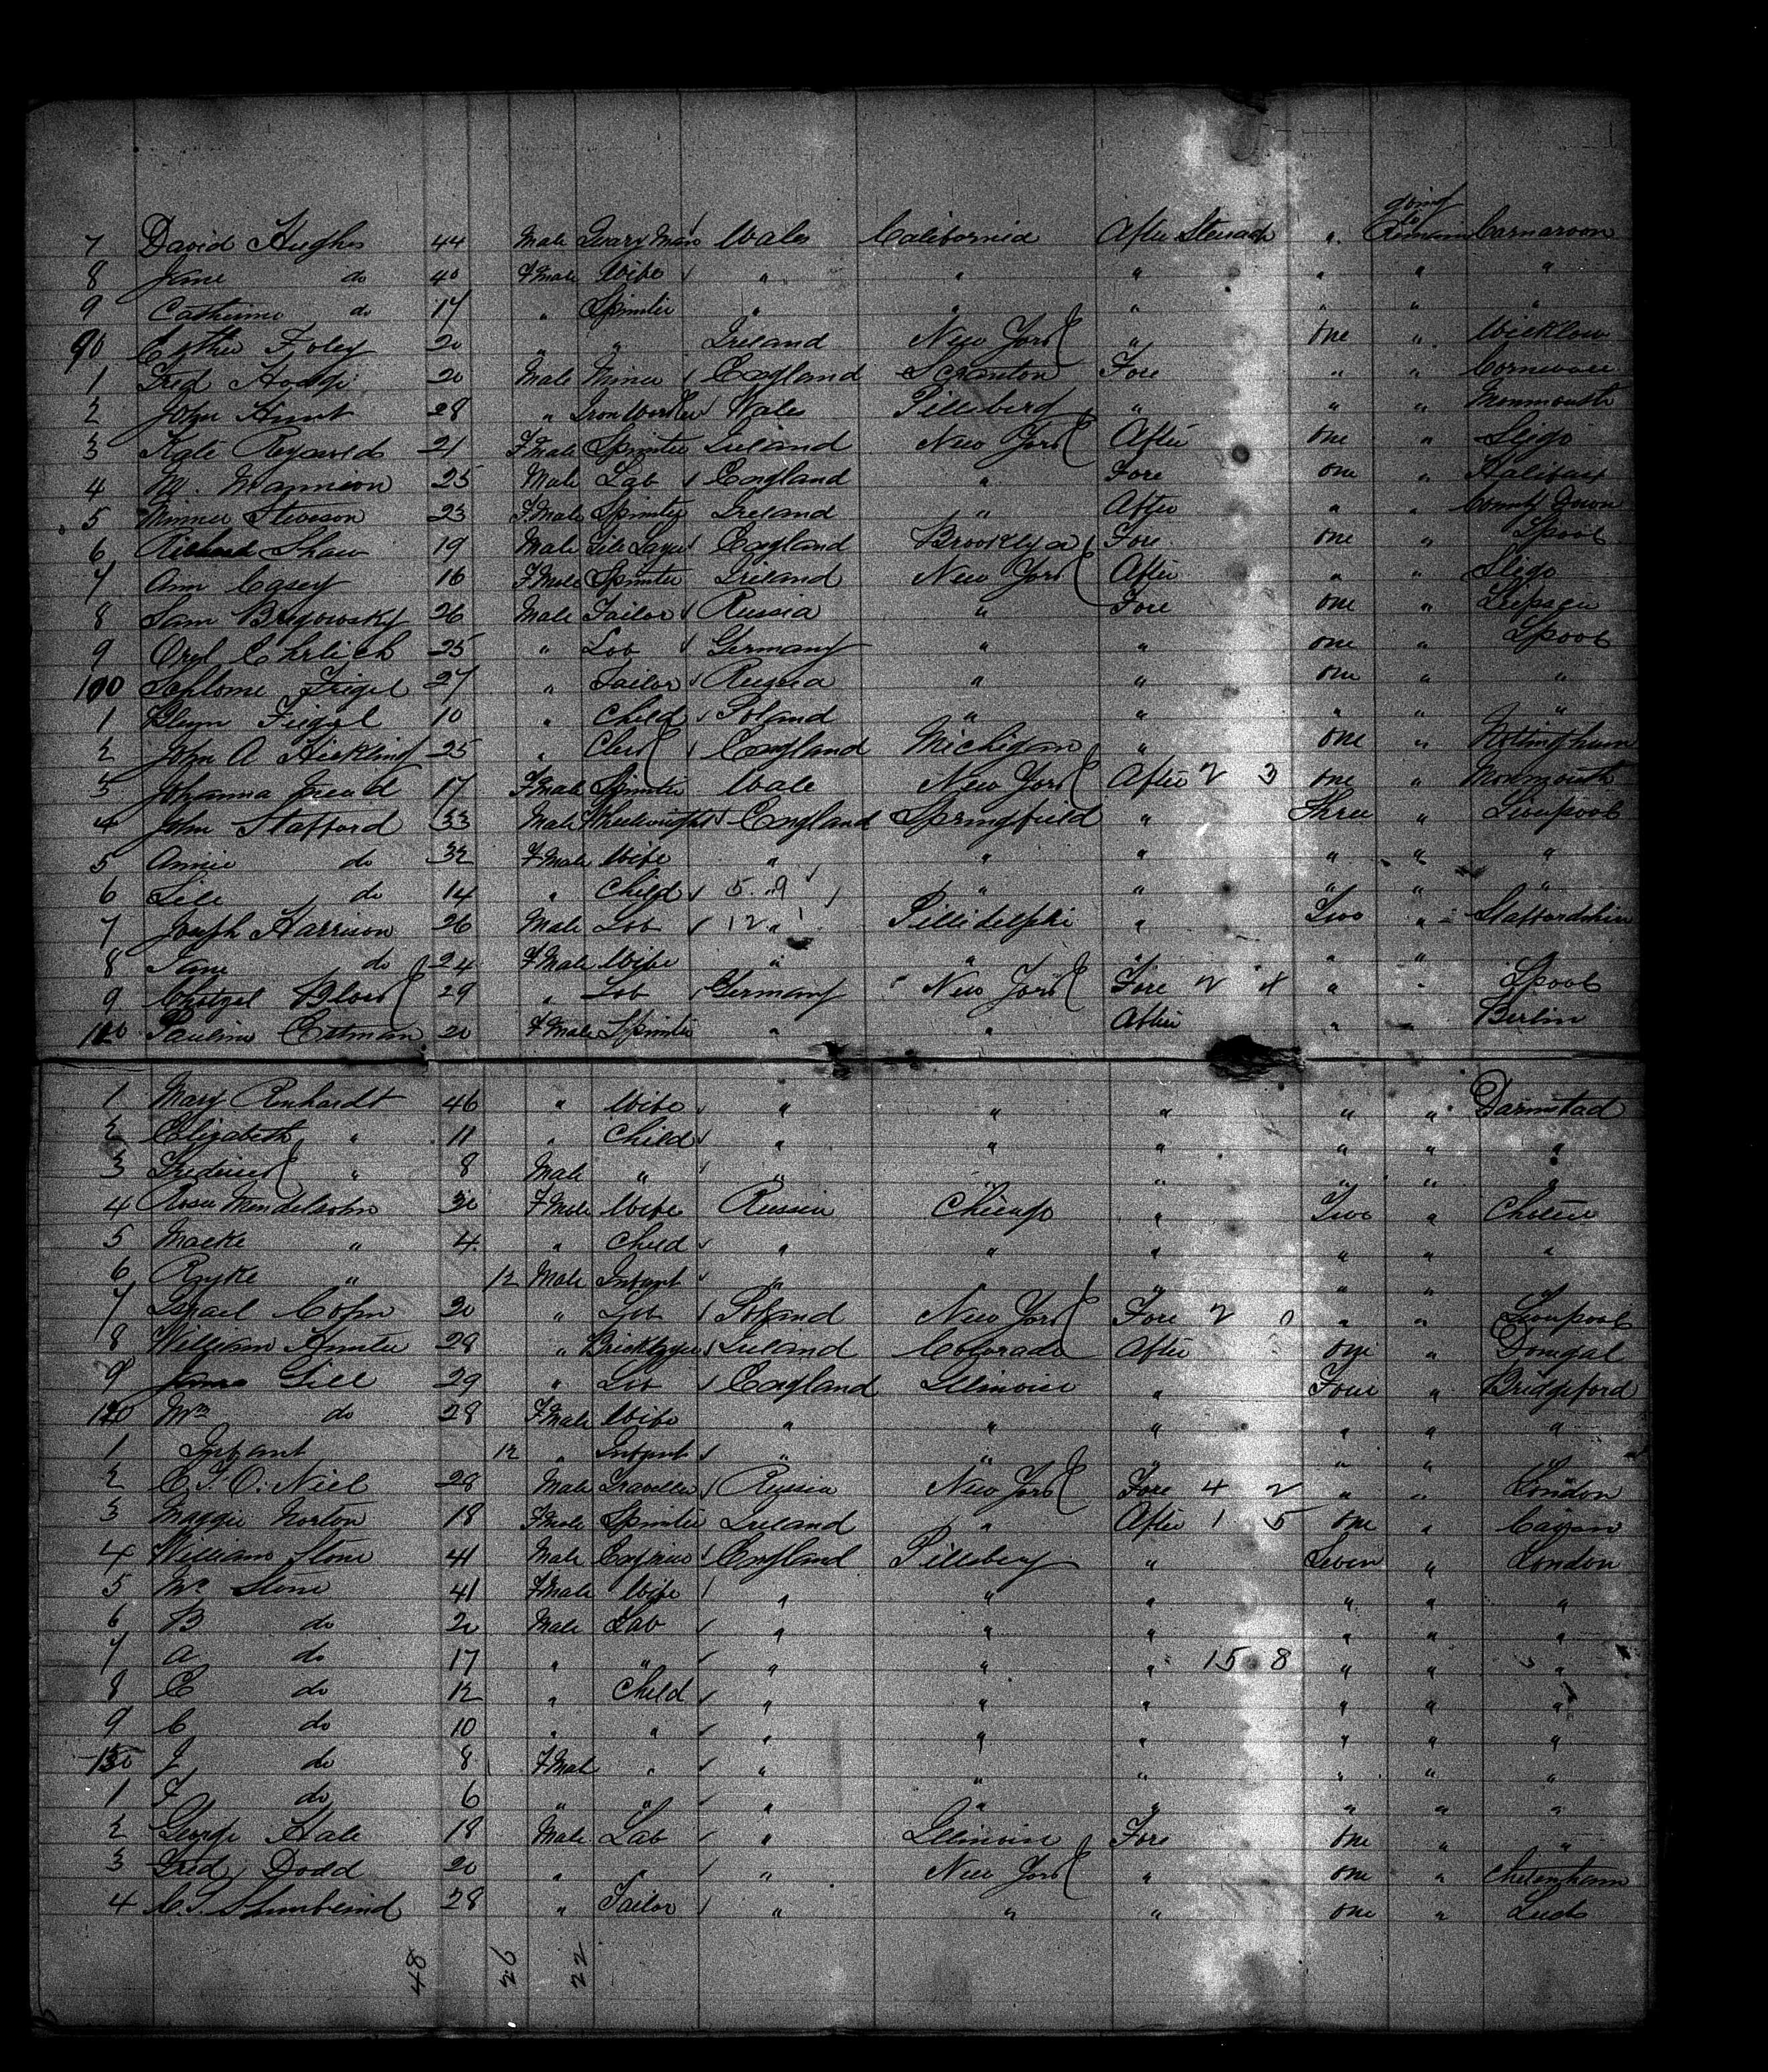 going
7 David Hughes 44 Male Quary Man Wales California After Steerage " to Remain Carnarvon
8 Jane do 40 F Male Wife " " " " " "
9 Catherine do 17 " Spinster " " " " " "
90 Esther Foley 20 " " Ireland New York " One " Wicklow
1 Fred Hodge 20 Male Miner England Scranton Fore " " Cornwall
2 John Hunt 28 " Iron Worker Wales " " " Monmouth
3 Kate Reynolds 21 F Male Spinster Ireland New York After One " Sligo
4 M. Mannion 25 Male Lab England " Fore One " Halifax
5 Minnie Steveson 23 F Male Spinster Ireland " After " " County Down
6 Richard Shaw 19 Male Tile Layer England Brooklyn Fore One " Lpool
7 Ann Casey 16 F Male Spinster Ireland New York After " " Sligo
8 Sam 26 Male Tailor Russia " Fore One "
9 Ehrlich 25 " Lab Germany " " One " Lpool
100 Schlome Feigel 27 " Tailor Russia " " One " "
1 Feigel 10 " Child Poland " " " " "
2 John A Hickling 25 " Clerk England Michigan " One " Nottingham
3 Johanna 17 F Male Spinster Wale New York After 2 3 One " Monmouth
4 John Stafford 33 Male Wheelwright England Springfield " Three " Liverpool
5 Annie do 32 F Male Wife " " " " " "
6 Lile do 14 " Child 5 9 " " " " "
7 Joseph Harrison 26 Male Lab 12 " Pillidelphi " Two " Staffordshire
8 Jane do 24 F Male Wife " " " " "
9 29 " Lab Germany New York Fore 2 4 " " Lpool
110 Pauline Estman 20 F Male Spinster " " After " " Berlin
1 Mary Renhardt 46 " Wife " " " " " Darmstad
2 Elizabeth " 11 " Child " " " " " "
3 Frederick " 8 Male " " " " " " "
4 Rosa Mendelsohn 30 F Male Wife Russia Chicago " Two "
5 " 4 " Child " " " " " "
6 Ryke " 12 Male Infant " " " " "
7 Israel Cohn 20 " Lab Poland New York Fore 2 0 " " Liverpool
8 William Hunter 28 " Bricklayer Ireland Colorado After One " Donegal
9 James Gill 29 " Lab England Illinois " Four " Briggford
120 Mrs do 28 F Male Wife " " " " " "
1 Infant 12 " Infant " " " " " "
2 C. T. O. Niel 28 Male Traveller Russia New York Fore 4 2 " " London
3 Maggie Norton 18 F Male Spinster Ireland " After 1 5 One " Cavan
4 William Stone 41 Male Engineer England " Seven " London
5 Mrs Stone 41 F Male Wife " " " " " "
6 B do 20 Male Lab " " " " " "
7 A do 17 " " " " " 15 8 " " "
8 E do 12 " Child " " " " " "
9 C do 10 " " " " " " " "
130 J do 8 F Male " " " " " " "
1 F do 6 " " " " " " " "
2 George Hale 18 Male Lab " Illinois Fore One " "
3 Fred Dodd 20 " " " New York " One " Cheltenham
4 28 " Tailor " " " One " Leeds
48 26 22